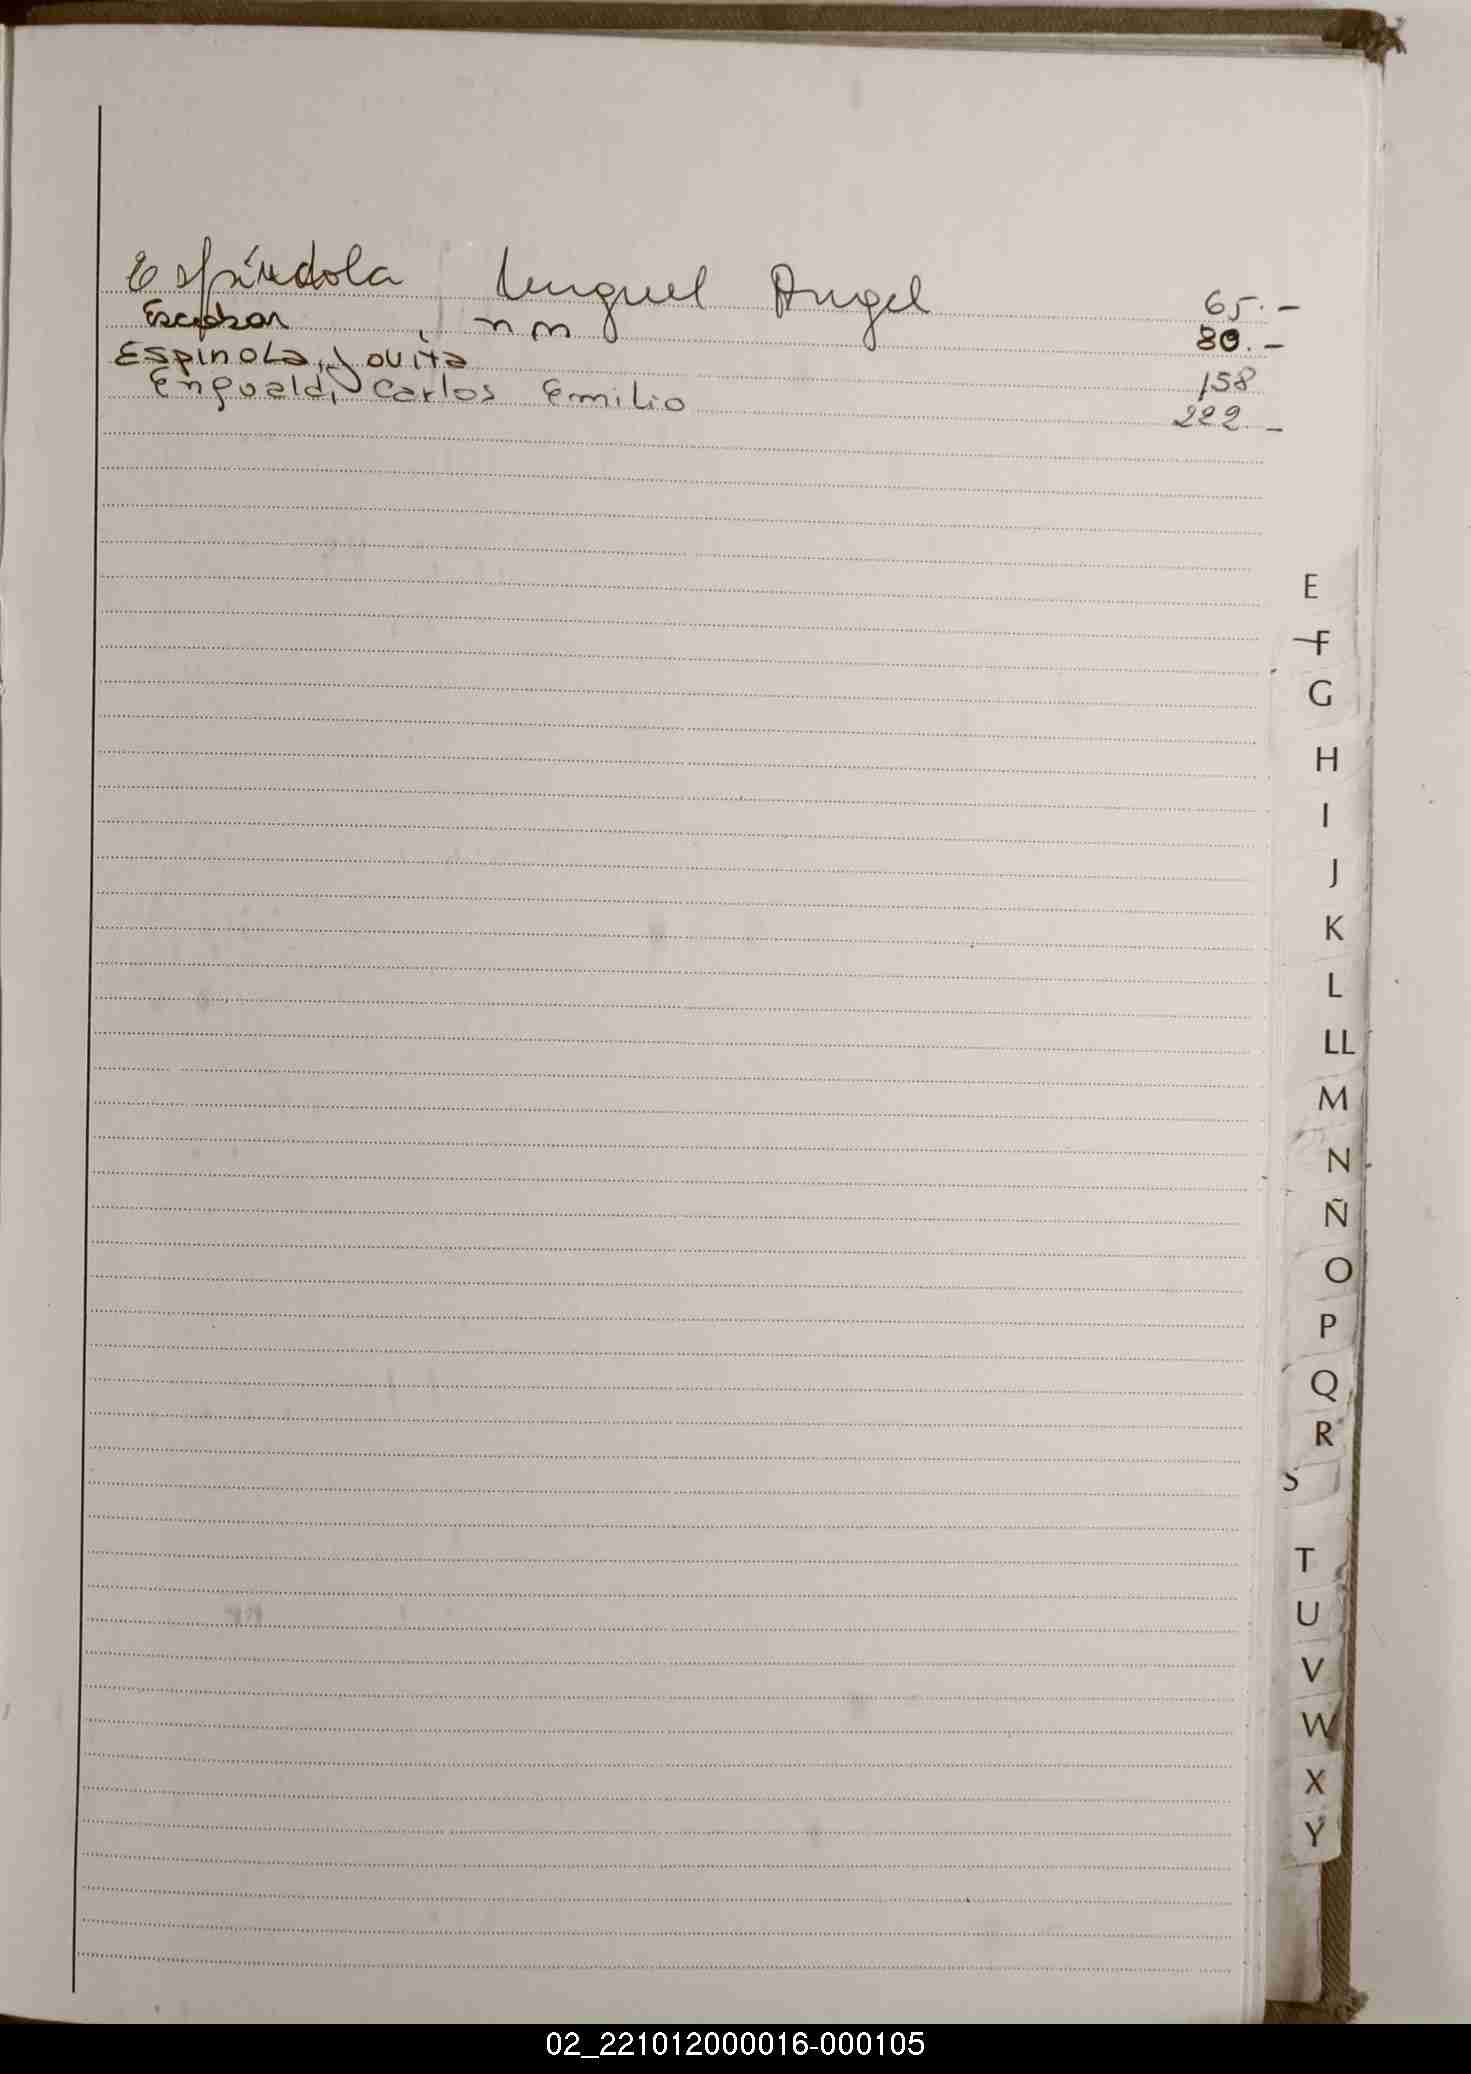 Espíndola, Miguel Angel 65.-
Escobar, n n 80.-
Espinola, Jovita 158
Enguald, Carlos Emilio 222.-
E
F
G
H
I
J
K
L
LL
M
N
Ñ
O
P
Q
R
S
T
U
V
W
X
Y
02_221012000016-000105